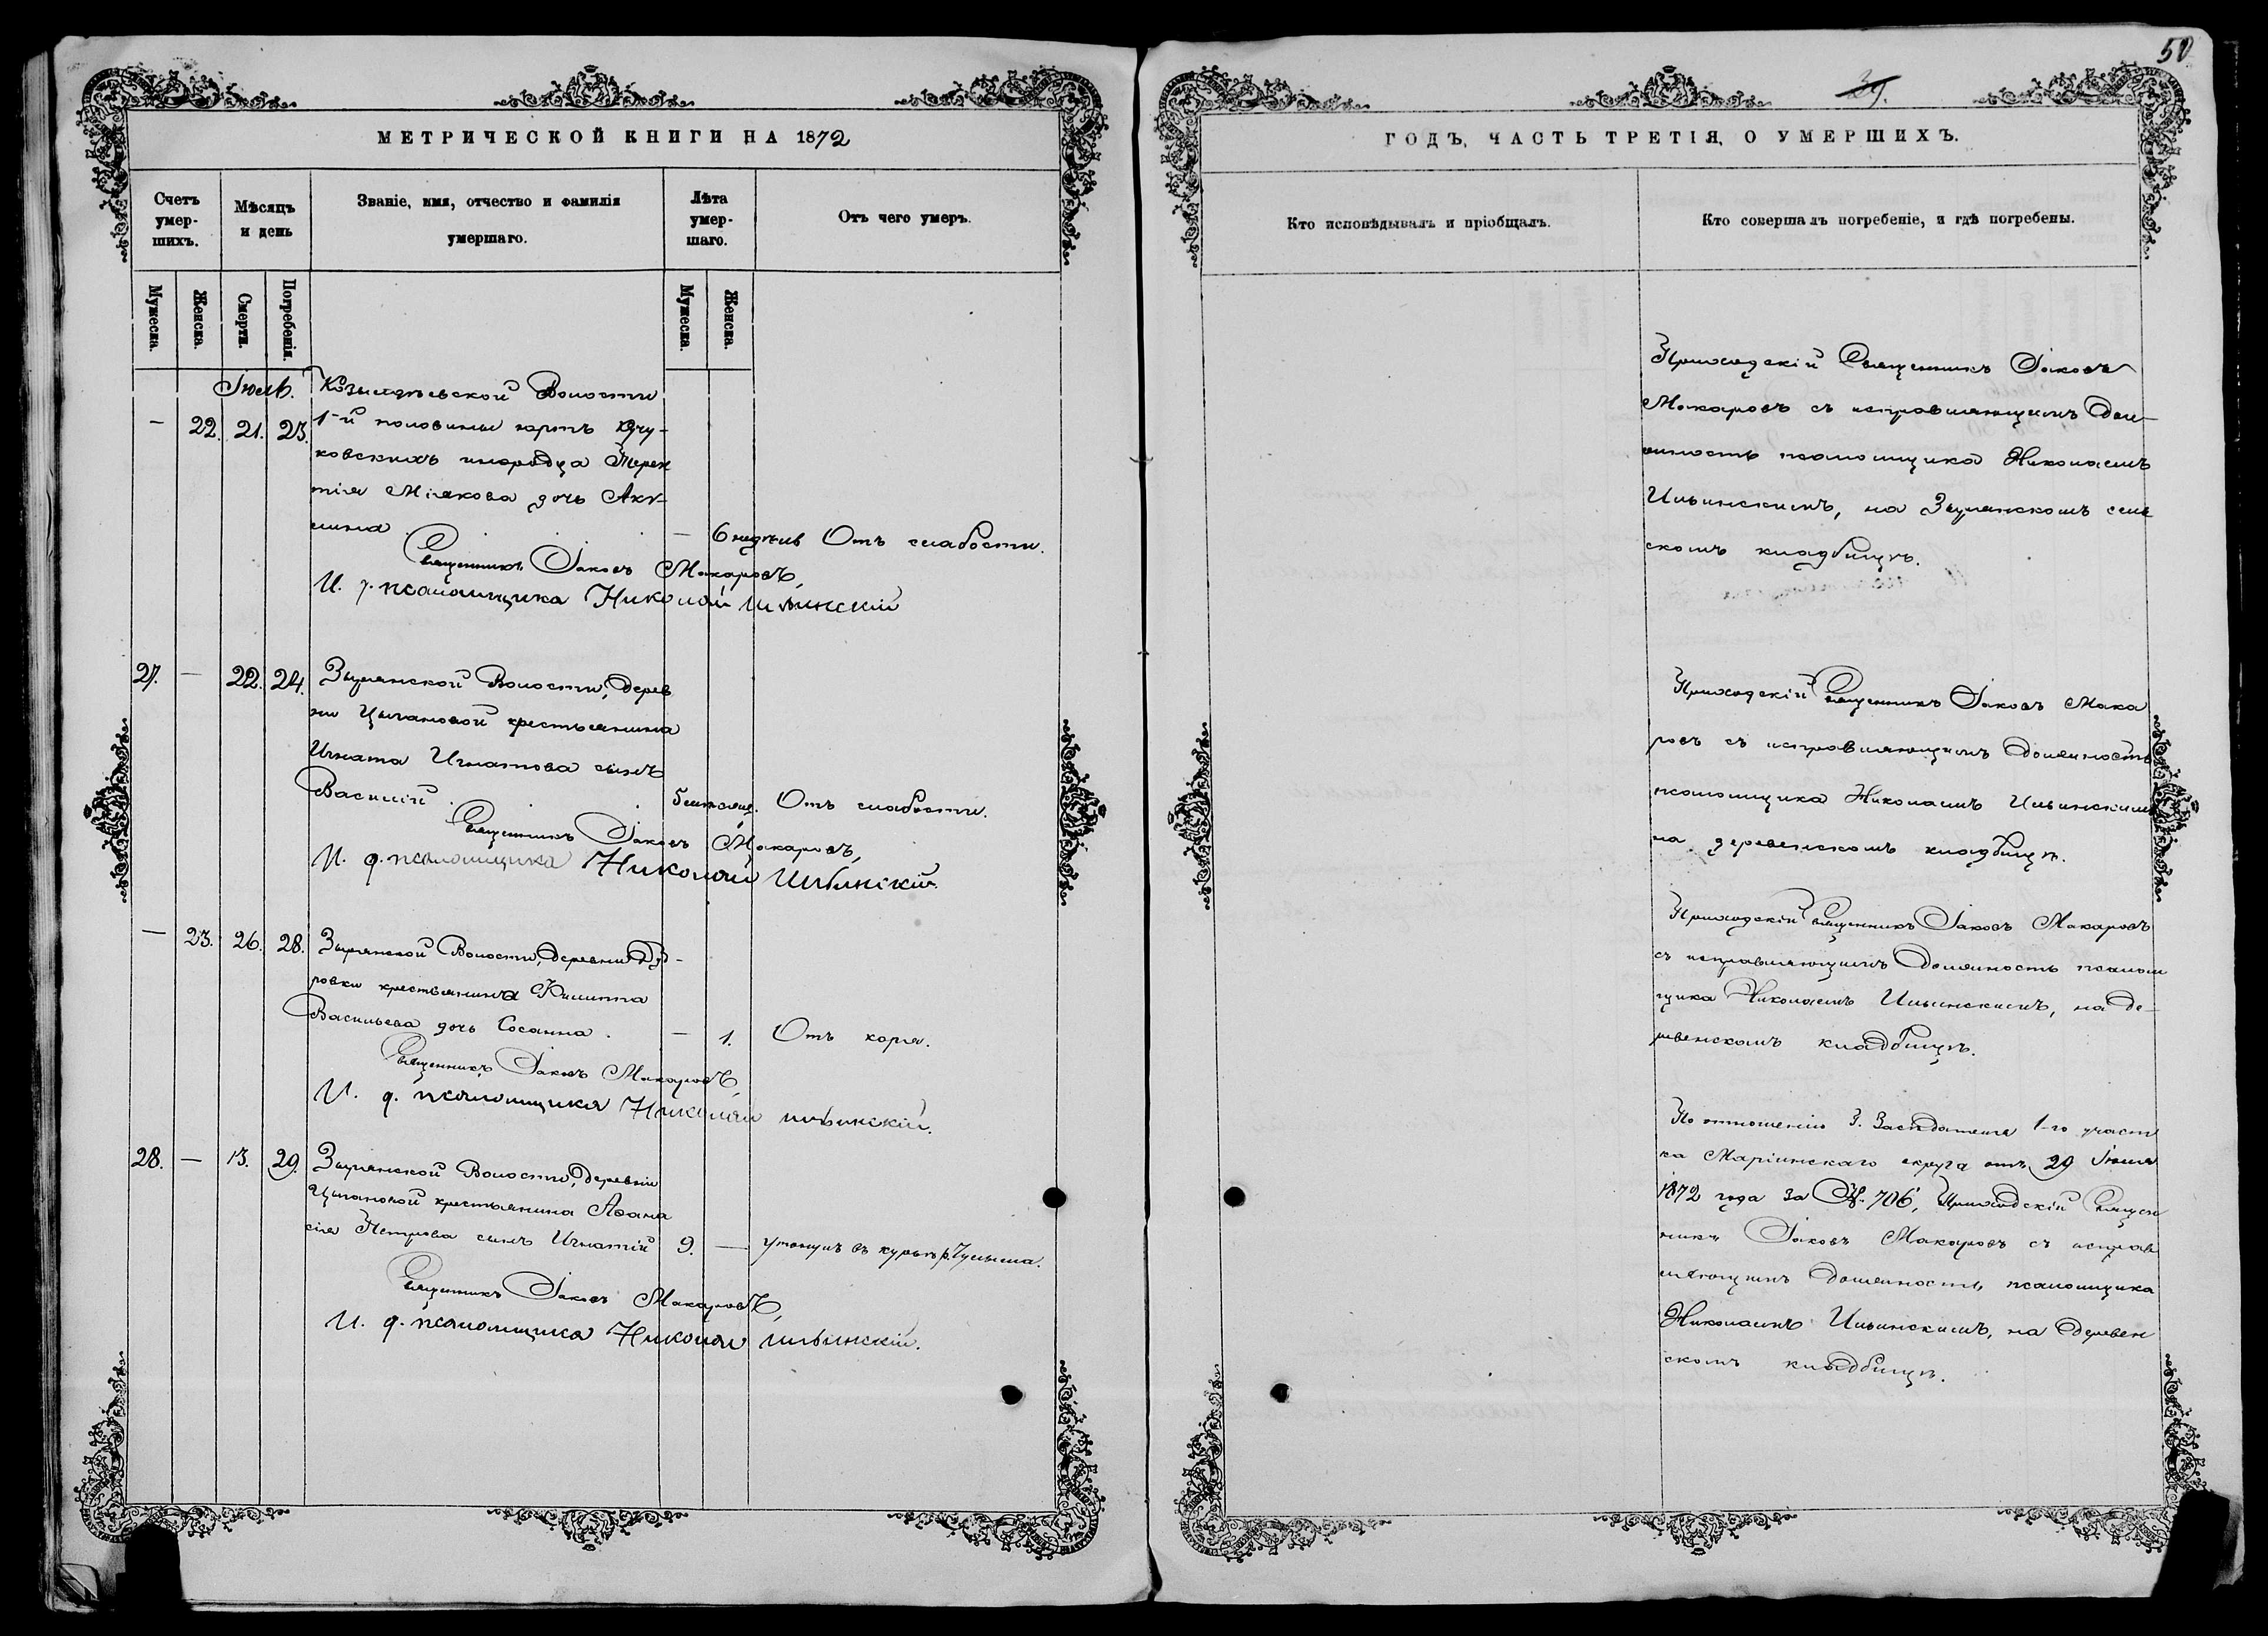 50
39.
МЕТРИЧЕСКОЙ КНИГИ НА 1872
Счетъ умер-шихъ.
Мѣсяцъ и день
Званіе, имя, отчество и фамилія умершаго.
Лѣта умер-шаго.
Отъ чего умеръ.
Мужеска.
Женска.
Смерти.
Погребенія.
Мужеска.
Женска.
Іюль.
Волости
— 22. 21. 23. 1-й половины юртъ
ковскихъ инородца Терен
тія Мілкова дочь Аку-
лина — 6 недѣль Отъ слабости.
Священникъ Іаковъ Макаровъ,
И. д. псаломщика Николай Ильинскій
27. — 22. 24. Зырянской Волости, Дерев
ни Цыгановой крестьянина
Игната Игнатова сынъ
Василій 5 мѣсяц. Отъ слабости.
Священникъ Іаковъ Макаровъ,
И. д. псаломщика Николай Ильинскій.
— 23. 26. 28. Зырянской Волости, Деревни Ду-
ровки крестьянина Филиппа
Васильева дочь Сосанна. — 1. Отъ коря.
Священникъ Іаковъ Макаровъ,
И. д. псаломщика Николай Ильинскій.
28. — 13. 29. Зырянской Волости, Деревни
Цыгановой крестьянина Афана
сія Петрова сынъ Игнатій 9. — утонулъ въ курьѣ р. Чулыма.
Священникъ Іаковъ Макаровъ,
И. д. псаломщика Николай Ильинскій.
ГОДЪ, ЧАСТЬ ТРЕТІЯ, О УМЕРШИХЪ.
Кто исповѣдывалъ и пріобщалъ.
Кто совершалъ погребеніе, и гдѣ погребены.
Приходскій Священникъ Іаковъ
Макаровъ съ исправляющимъ Дол-
жность псаломщика Николаемъ
Ильинскимъ, на Зырянскомъ сель
скомъ кладбищѣ.
Приходскій Священникъ Іаковъ Мака
ровъ съ исправляющимъ Должность
псаломщика Николаемъ Ильинскимъ
на деревенскомъ кладбищѣ.
Приходскій Священникъ Іаковъ Макаровъ
съ исправляющимъ Должность псалом
щика Николаемъ Ильинскимъ, на де-
ревенскомъ кладбищѣ.
По отношенію З. Засѣдателя 1-го участ
ка Маріинскаго округа отъ 29 Іюля
1872 года за № 706, Приходскій Священ
никъ Іаковъ Макаровъ съ исправ
ляющимъ Должность псаломщика
Николаемъ Ильинскимъ, на Деревен
скомъ кладбищѣ.